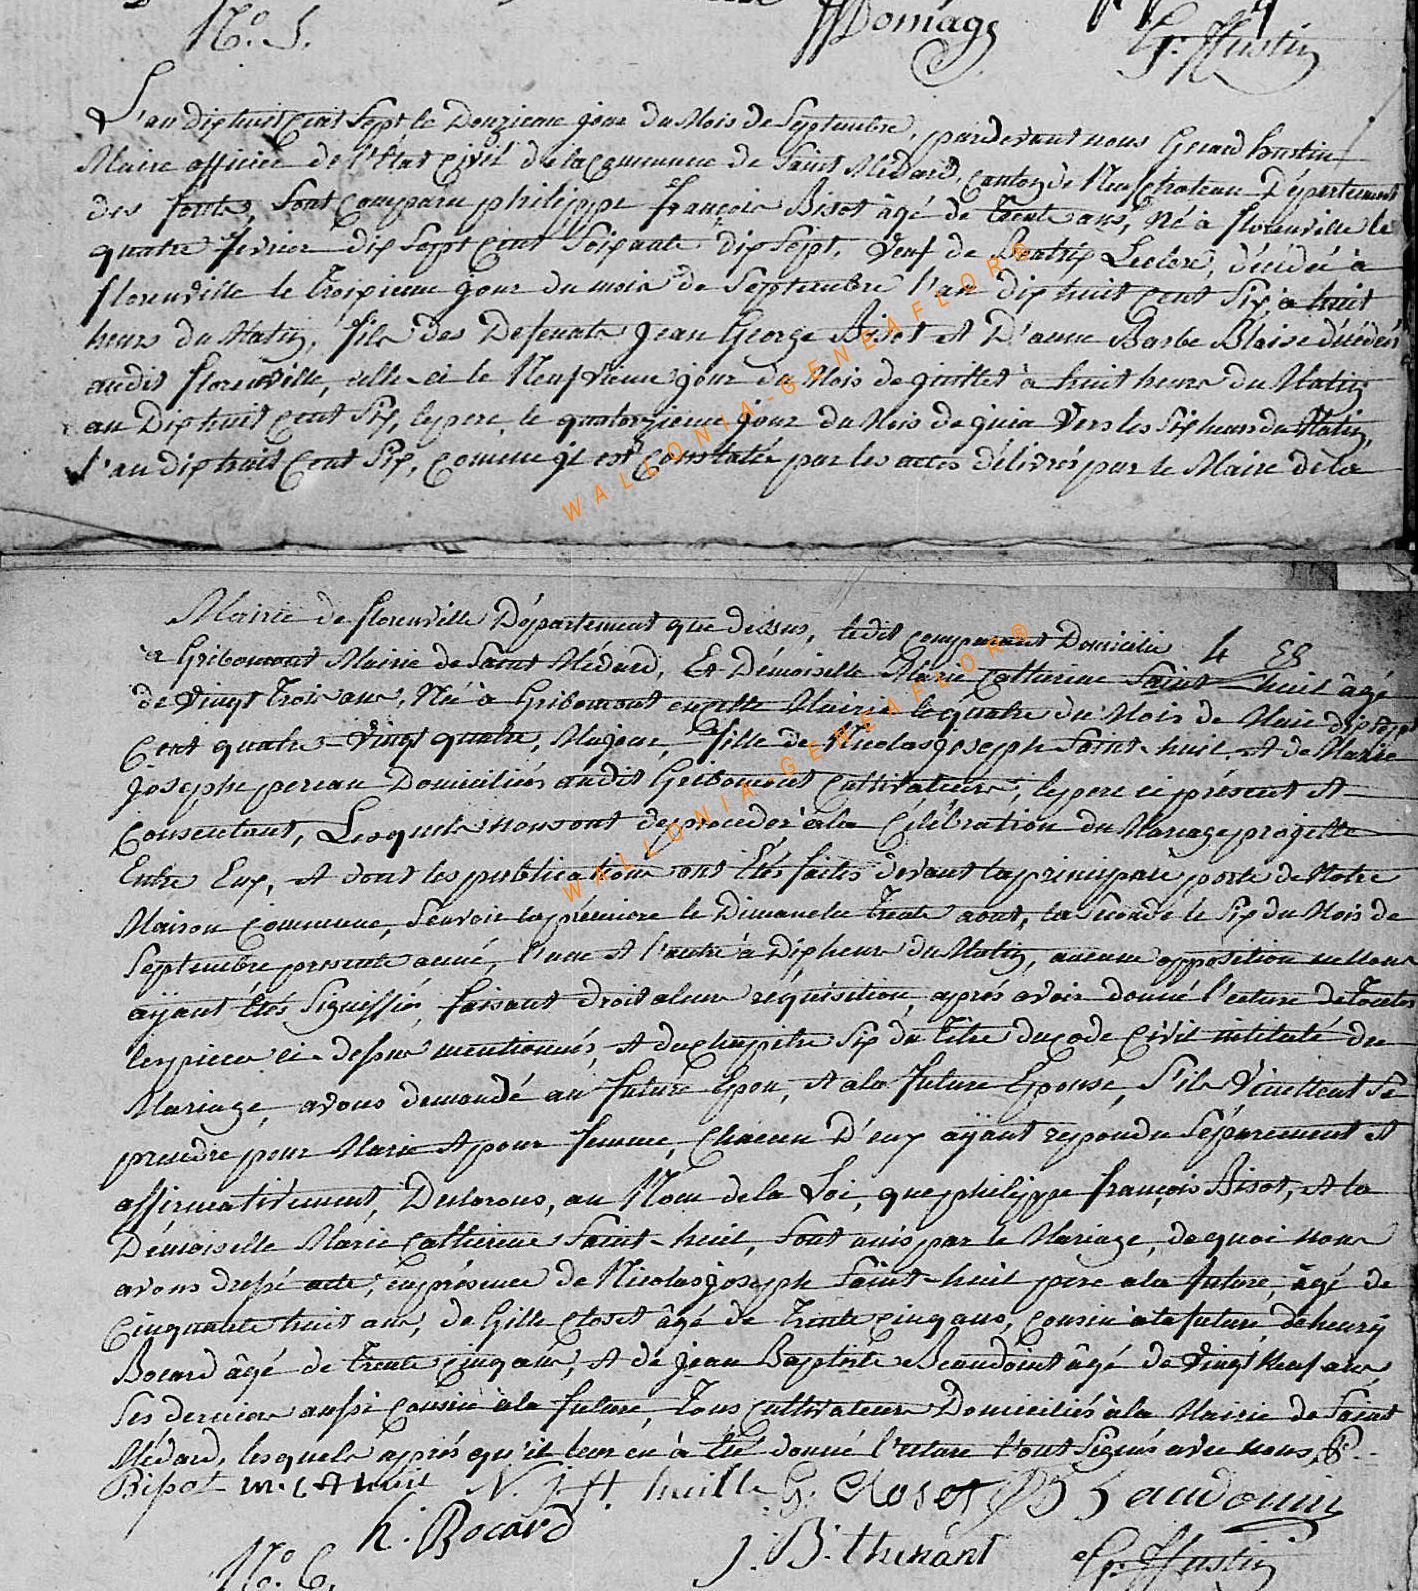 JJ Domage
G. J. Hustin
N.o 5.
L'an dix huit Cent Sept le Douzieme jour du Mois de Septembre, pardevant nous Gerard hustin
Maire officier de l'Etat Civil de la Commune de Saint Médard, canton de Neufchateau Département
des forets, Sont Comparu philippe françois Bisot âgé de trente ans, Né à florenville le
quatre fevrier dix Sept Cent Soixante dix Sept, Veuf de Beatrix Leclere, décédée à
florenville le troixieme jour du mois de Septembre l'an dix huit Cent Six, à huit
heure du Matin, fils des defunts Jean George Bisot et D'anne Barbe Blaise décédés
audit florenville, celle-ci le Neufvieme jour du Mois de juillet à huit heure du Matin
an Dix huit Cent Six, le pere, le quatorzieme jour du Mois de juin Vers les Six heur du Matin,
l'an dix huit Cent Six, comme il est Constatée par les actes délivrés par le Maire de la
WALLONIA-GENEAFLOR®
Mairie de florenville Département que dessus, ledit comparant Domicilié
4 88
à Gribomont Mairie de Saint Médard, Et Démoiselle Marie Catherine Saint-huil âgé
de Vingt trois ans, Né à Gribomont en cette Mairie le quatre du Mois de Maie dix sept
Cent quatre-Vingt quatre, Majeur, fille de Nicolas joseph Saint-huil, et de Marie
Joseph pereau Domiciliés audit Gribomont Cultivateurs, le pere ci présent et
Consentant, Lesquels nous ont de proceder à la Célébration du Mariage projetté
Entre Eux, et dont les publications ont Etés faites devant la principale porte de Notre
Maison Commune, Scavoir la premiere le Dimanche trente aout, la Seconde le Six du Mois de
Septembre presente anné, l'une et l'autre à Dix heure du Matin, aucune opposition ne nous
aÿant Etés Signiffiés, faisant droit a leur réquisition, après avoir donné l'ecture de toutes
les pieces ci-dessus mentionnés, et du chapitre Six du titre du code Civil intitulé du
Mariage, avons demandé au future Epou, et a la future Epouse, S'ils Veuttent Se
prendre pour Marie et pour femme, Chacun D'eux aÿant repondu Séparement et
affirmativement, Declarons, au Nom de la Loi, que philippe françois Bisot, et la
Démoiselle Marie Catherine Saint-huil, Sont unis par le Mariage, de quoi nous
avons dressé acte, en présence de Nicolas joseph Saint-huil pere a la future, âgé de
Cinquante huit ans, de Gille Closet âgé de trente cinq ans, cousin à la future, de henry
Bocard âgé de trente cinq ans, et de jean Baptiste Beaudoint âgé de Vingt Neuf ans,
Ses dernier aussi Cousin à la future, tous Cultivateurs Domiciliés à la Mairie de Saint
Médard, lesquels apprés qu'il leur en à Eté donné l'ecture l'ont Signés avec nous, P.
Bisot m. C. St huil N. J. St. huille G. Closet JB Baudouin
h. Bocard
J. B. thenant
G. J. Hustin
N.o 6.
WALLONIA-GENEAFLOR®